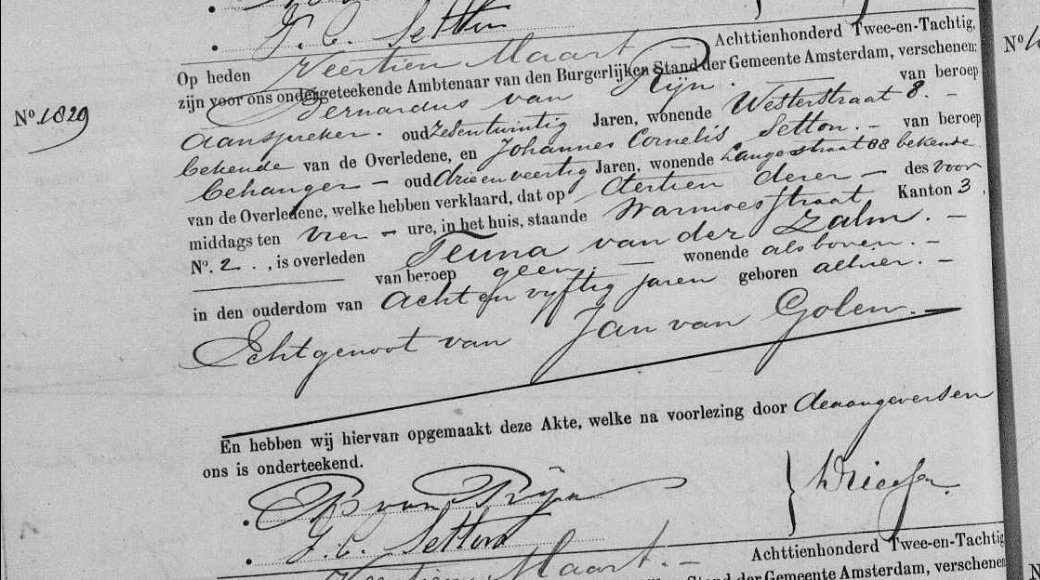 J. C. Setton
Achttienhonderd Twee-en-Tachtig,
Op heden Veertien Maart
zijn voor ons ondergeteekende Ambtenaar van den Burgerlijken Stand der Gemeente Amsterdam, verschenen:
No. 1829
Bernardus van Rijn. van beroep
Aanspreker. oud zesentwintig Jaren, wonende Westerstraat 8.
bekende van de Overledene, en Johannes Cornelis Setton. van beroep
behanger oud drieenveertig Jaren, wonende Langestraat 88 bekende
van de Overledene, welke hebben verklaard, dat op dertien dezer des voor
middags ten vier ure, in het huis, staande Warmoesstraat Kanton 3
No. 2 , is overleden Teuna van der Zalm.
van beroep geen. wonende als boven.
in den ouderdom van Acht en vijftig jaren geboren alhier.
Echtgenoot van Jan van Golen.
En hebben wij hiervan opgemaakt deze Akte, welke na voorlezing door de aangevers en
ons is onderteekend.
B van Rijn
J. C. Setton
Achttienhonderd Twee-en-Tachtig
Veertien Maart.
Stand der Gemeente Amsterdam, verschenen
No